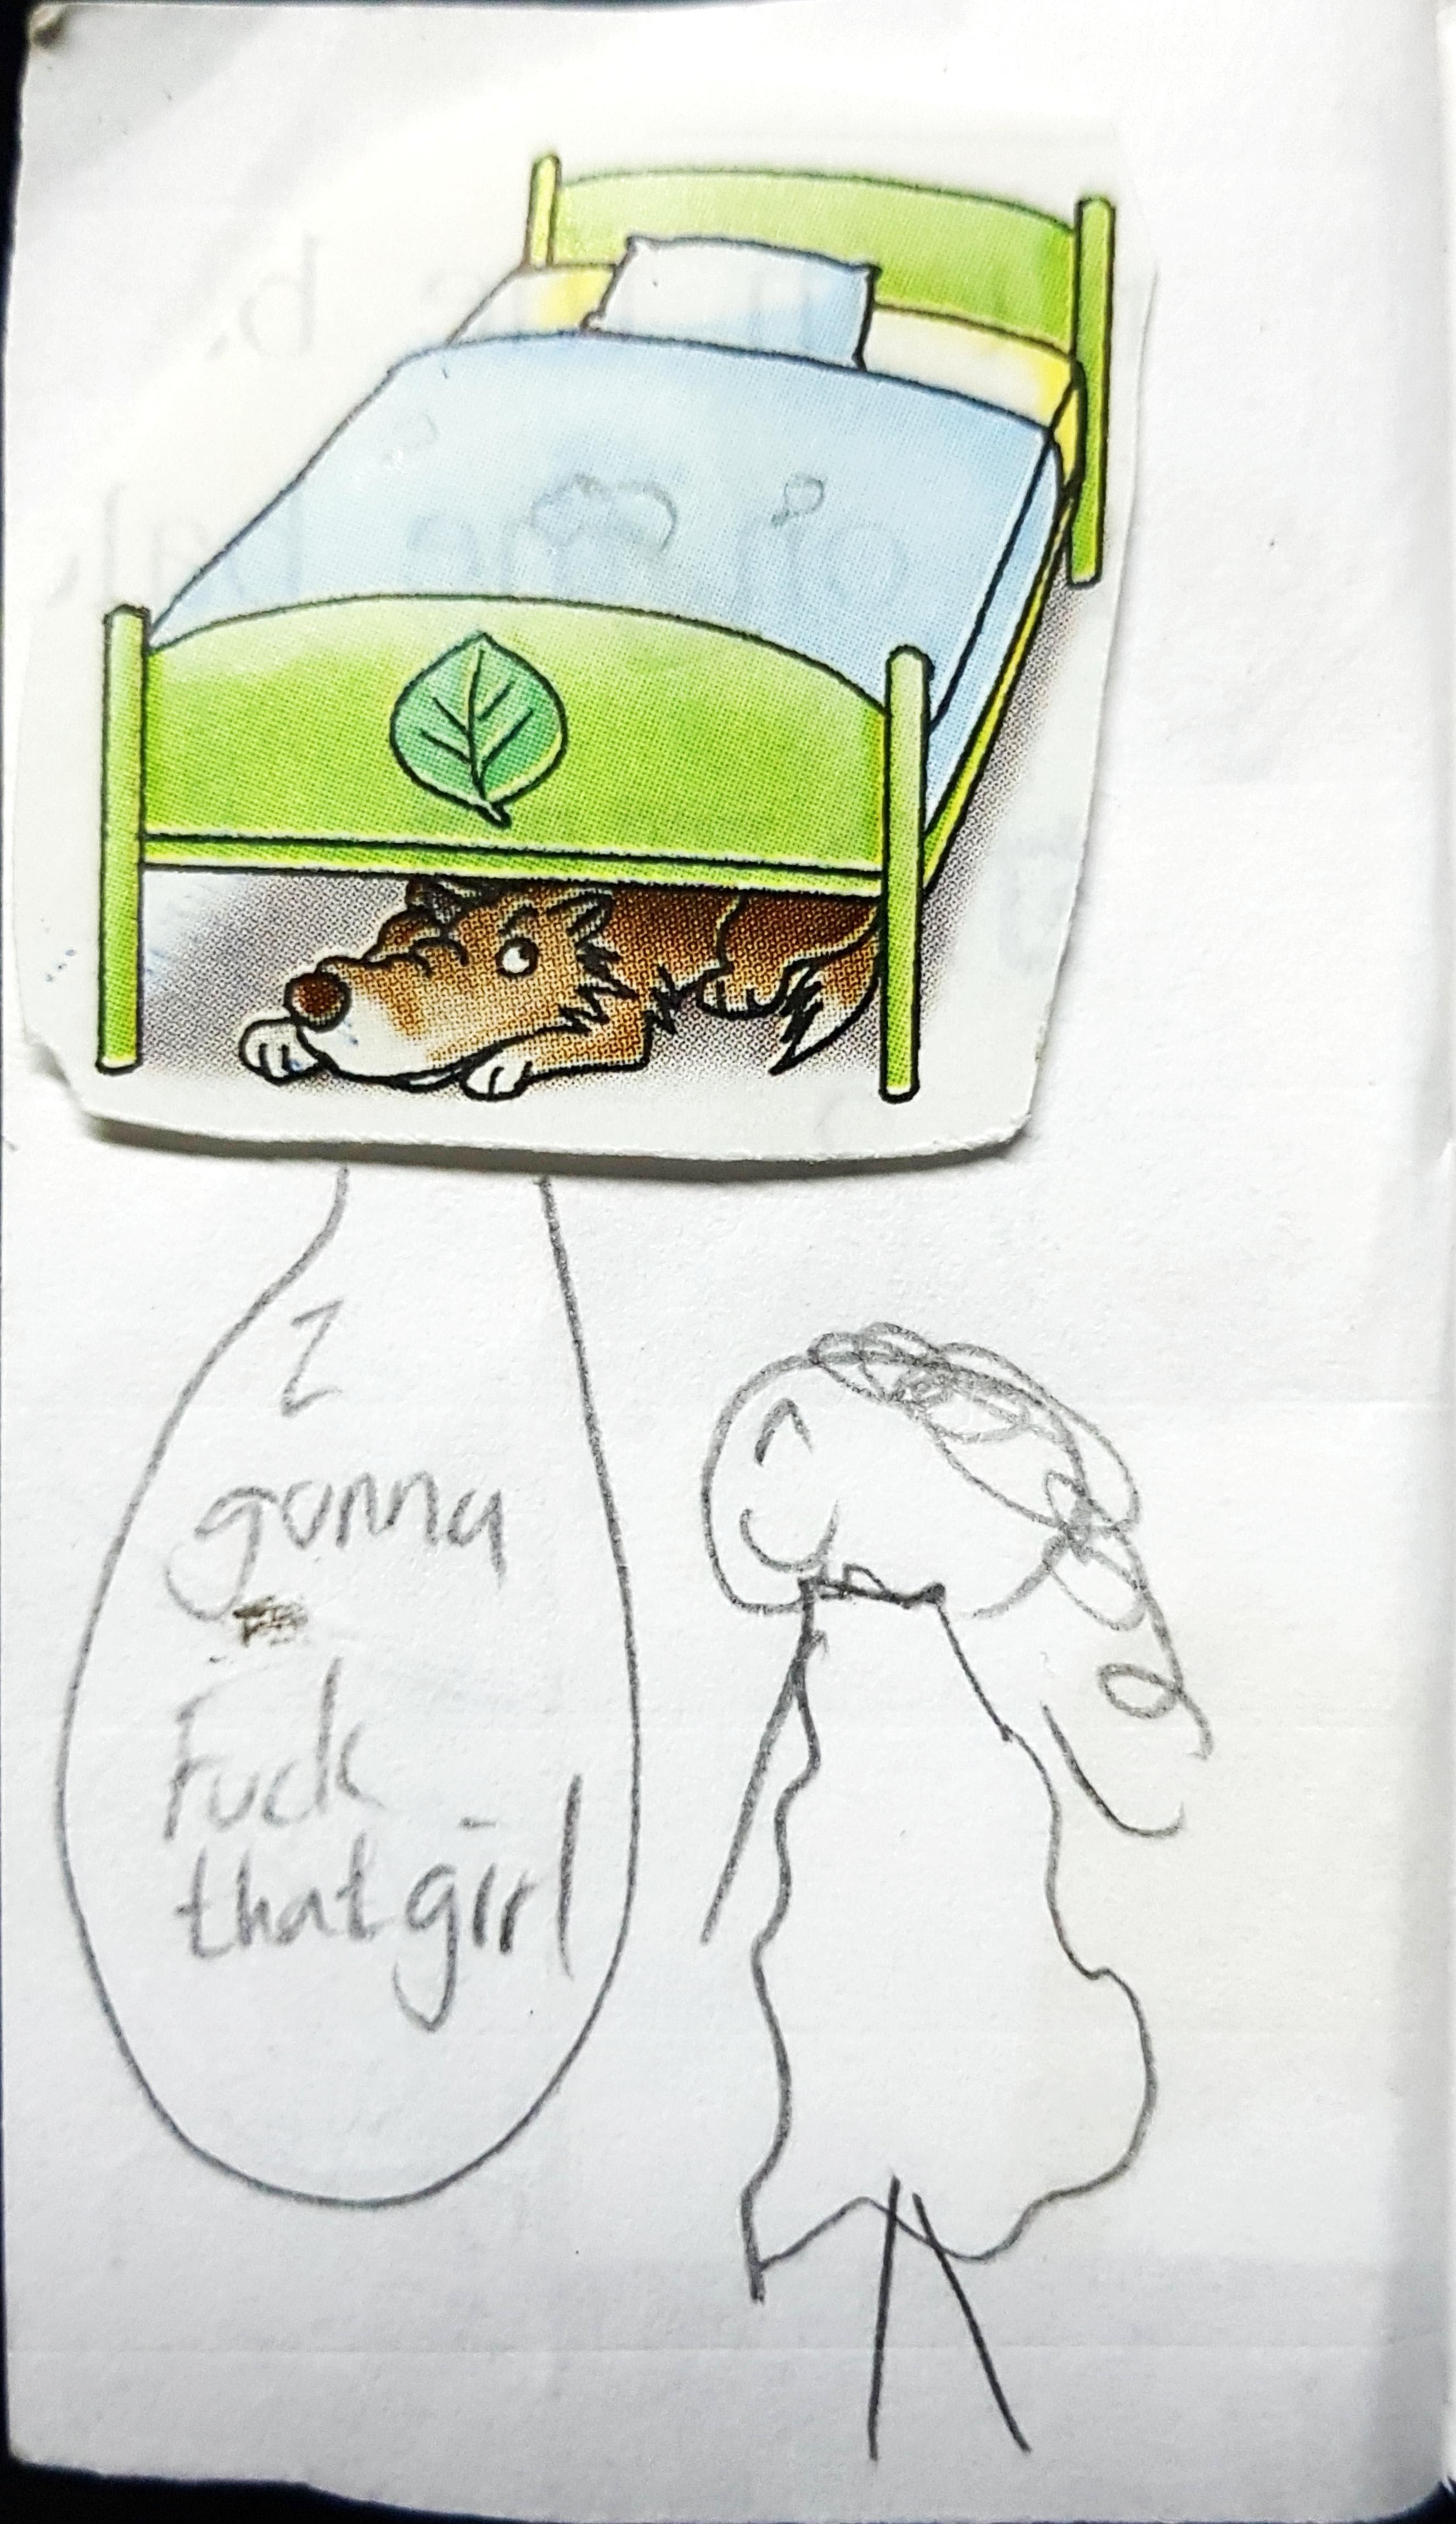 I
gonna
Fuck
that girl